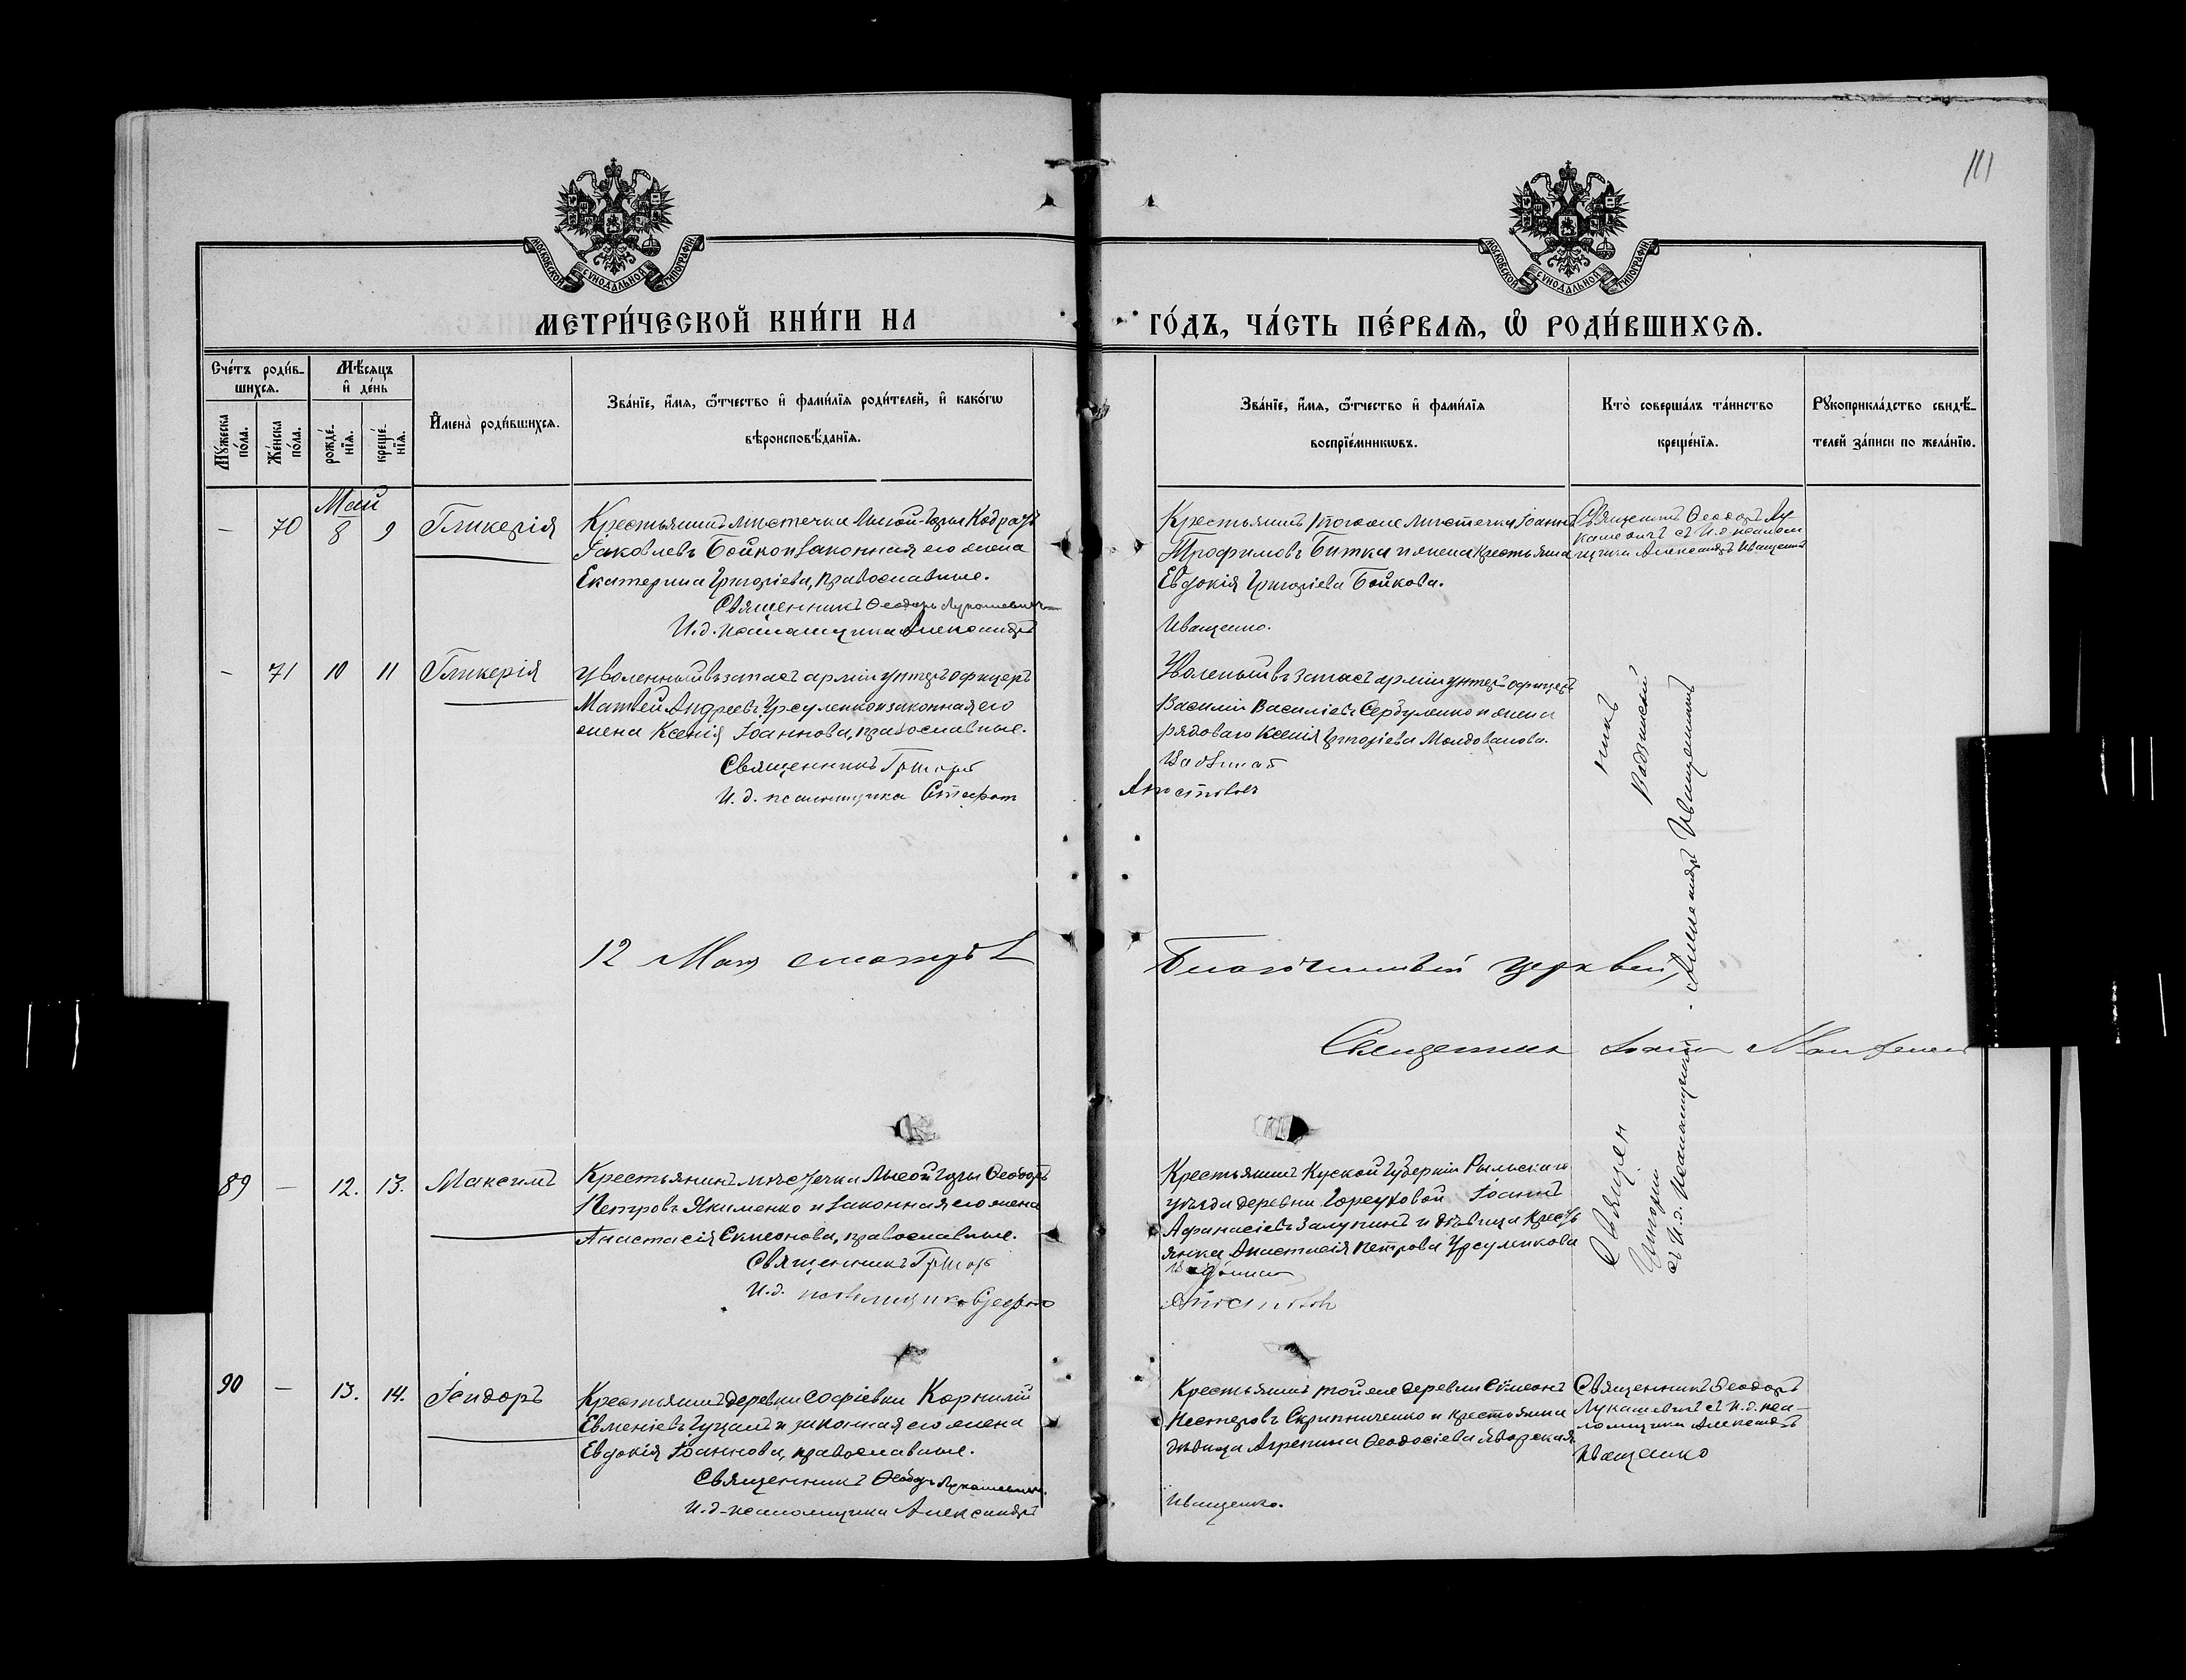 111
МОСКОВСКОЙ СѴНОДАЛЬНОЙ ТИПОГРАФІИ
МОСКОВСКОЙ СѴНОДАЛЬНОЙ ТИПОГРАФІИ
МЕТРИ́ЧЕСКОЙ КНИ́ГИ НА
ГО́ДЪ, ЧА́СТЬ ПЕ́РВАѦ, Ѡ҆ РОДИ́ВШИХСѦ.
Сче́тъ роди́в-
шихсѧ.
Мꙋ́жеска по́ла.
Же́нска по́ла.
Мѣ́сѧцъ
и҆ де́нь
рожде́-
нїѧ.
креще́-
нїѧ.
И҆мена̀ роди́вшихсѧ.
Зва́нїе, и҆́мѧ, ѻ҆́тчество и҆ фами́лїѧ роди́телей, и҆ како́гѡ
вѣроисповѣ́данїѧ.
Зва́нїе, и҆́мѧ, ѻ҆́тчество и҆ фами́лїѧ
воспрїе́мникѡвъ.
Кто̀ соверша́лъ та́инство
креще́нїѧ.
Рꙋкоприкла́дство свидѣ́-
телей за́писи по жела́нїю.
Май
– 70 8 9 Гликерія
Крестьянинъ мистечка Лысой-Горы Кодратъ
Іаковлевъ Бойко и законная его жена
Екатерина Григоріева, православные.
Священникъ Ѳеодоръ Лукашевичъ
И. д. псаломщика Александръ
Крестьянинъ того же мистечка Іоаннъ
Трофимовъ Битка и жена крестьянина
Евдокія Григоріева Бойкова.
Иващенко.
Священникъ Ѳеодоръ Лу
кашевичъ съ И. д. псалом
щика Александръ Иващенко
– 71 10 11 Гликерія
Уволенный въ запасъ арміи унтеръ офицеръ
Матвей Андреевъ Урсуленко и законная его
жена Ксенія Іоаннова, православные.
Священникъ Григорій
И. д. псаломщика Стефан
Уволеный въ запасъ арміи унтеръ офицеръ
Василій Василіевъ Сербуленко и жена
рядоваго Ксенія Григоріева Молдованова.
Апостоловъ
12 Мая смотрѣлъ
Благочинный церквей,
Священникъ Іоаннъ
89 – 12. 13. Максимъ
Крестьянинъ мѣстечка Лысой Горы Ѳеодоръ
Петровъ Якименко и законная его жена
Анастасія Симеонова, православные.
Священникъ Григорій
И. д. псаломщика Стефан
Крестьянинъ Куской Губерніи Рыльскаго
уѣзда деревни Іоаннъ
Афанасіевъ Залупинъ и дѣвица крестъ
янка Анастасія Петрова Урсуленкова
Апостоловъ
Священ
никъ
съ И. д. псаломщика Александръ Иващенко
90 – 13. 14. Ісидоръ
Крестьянинъ деревни Софіевки Корнилій
Евменіевъ Гуцалъ и законная его жена
Евдокія Іоаннова, православные.
Священникъ Ѳеодоръ Лукашевичъ.
И. д. псаломщика Александръ
Крестьянинъ той же деревни Симеонъ
Несторовъ Скрипниченко и крестьянка
дѣвица Агрепина Ѳеодосіева Яворская.
Иващенко.
Священникъ Ѳеодоръ
Лукашевичъ съ И. д. пса-
ломщика Александръ
Иващенко